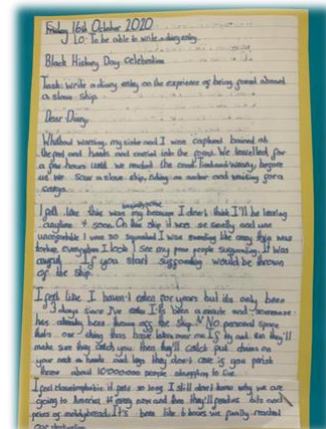 Friday 16th October 2020
LO: To be able to write a diary entry.
Black History Day celebration
Task: Write a diary entry on the experience of being forced aboard
a slave ship.
Dear Diary,
Without warning, my sister and I were captured bound at
the feet and hands and carried into the . We travelled for
a few hours until we reached the coast. Tired and weary, before
us we saw a slave ship, riding an anchor and waiting for a
cargo.
I felt like this was my because I don't think I'll be leaving
anytime soon. On this ship it was so smelly and
I was so squashed I was
torture everywhere I look I see my poor people suffering. It was
awful. If you start you would be thrown
of the ship.
I feel like I haven't eaten for years but its only been
3 days since I've eaten. It's been a minute and someone
has already been thrown off the ship. No personal space
make sure they catch you then they'll
your neck hands and legs they don't care if you perish
there about 10000000 people struggling to live.
I feel claustrophobic it so long I still don't know why we are
going to America. every now and then they'll bits and
pieces of . It's been like 6 hours we finally reached
our destination